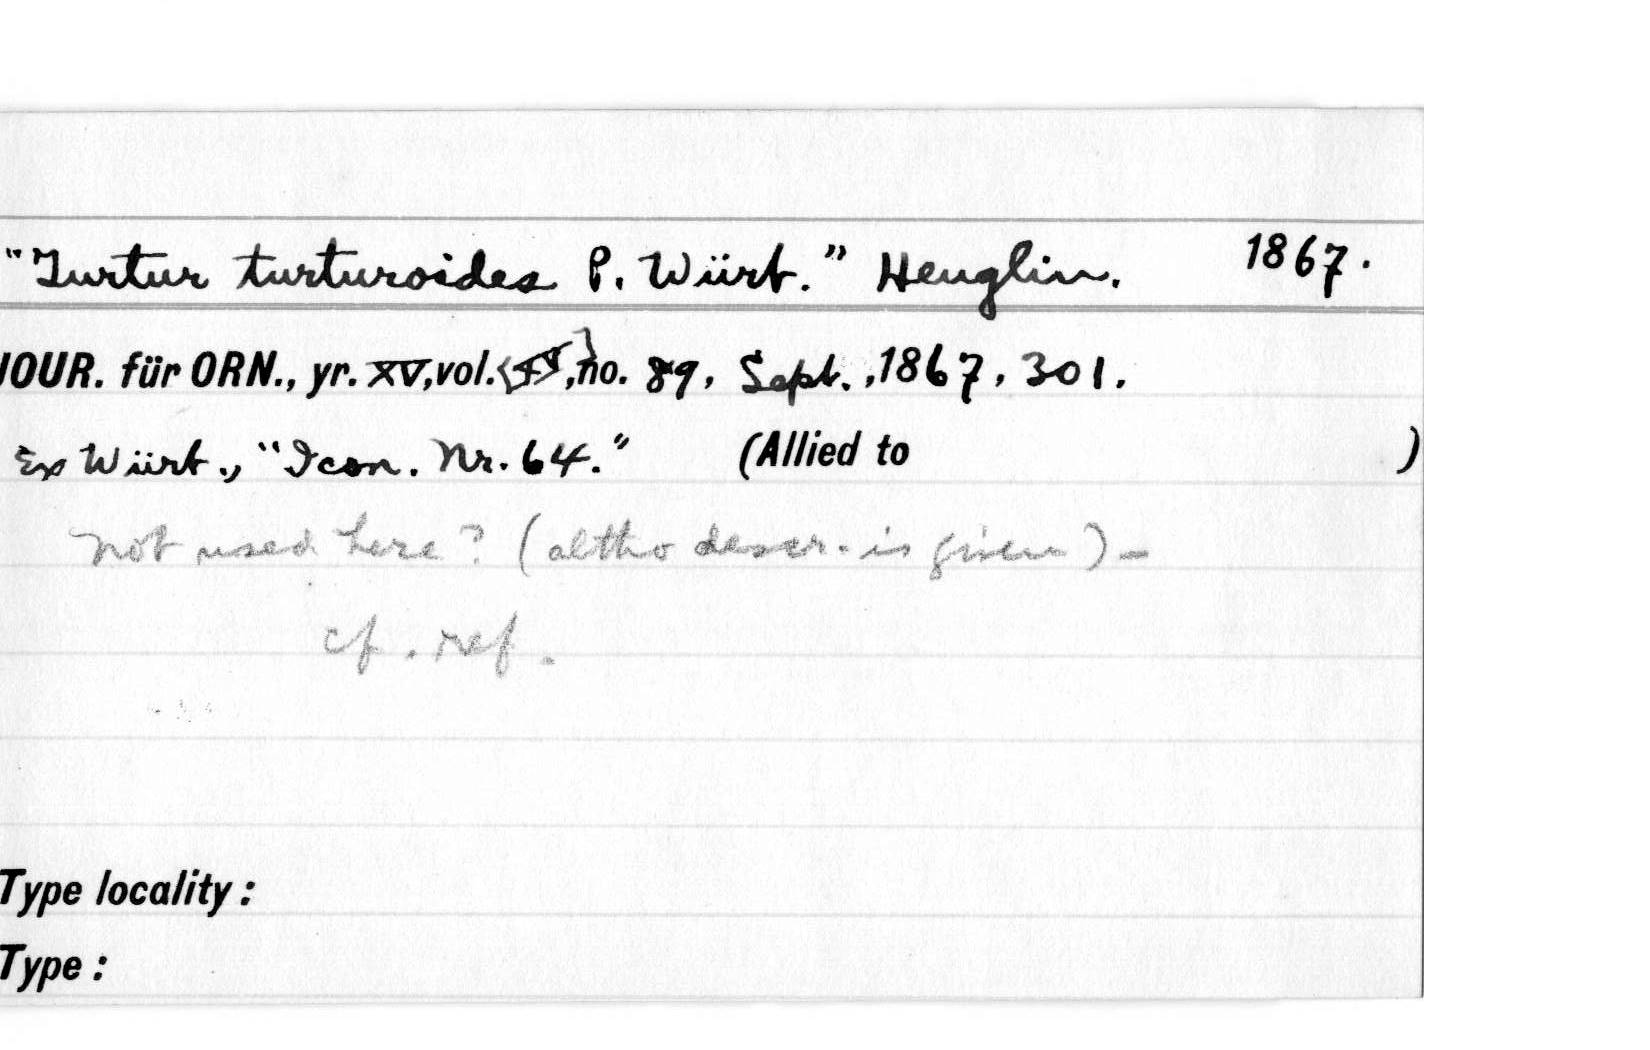 "Turtur turturoides P. Würt." Heuglin. 1867.
JOUR. für ORN., yr. XV, vol. {15}, no. 89, Sept., 1867, 301.
Ex Würt., "Icon. Nr. 64." (Allied to )
Not used here? (altho descr. is given) –
cf. ref.
Type locality :
Type :